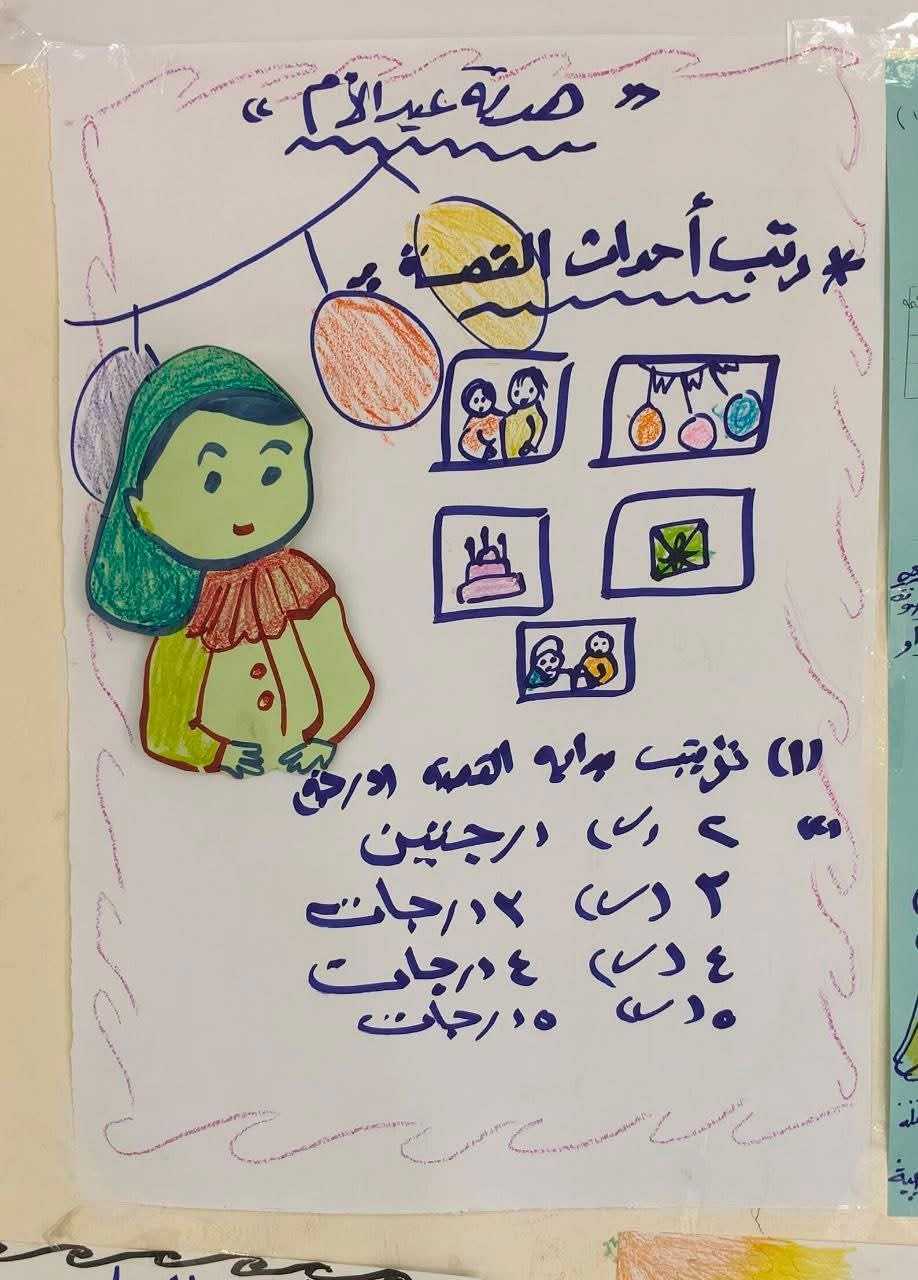 " هدية عيد الأم "
* رتب أحداث القصة :-
(١) ترتيب بداية القصة
٢ (س) درجتين
٣ (س) ٣ درجات
٤ (س) ٤ درجات
٥ (س) ٥ درجات